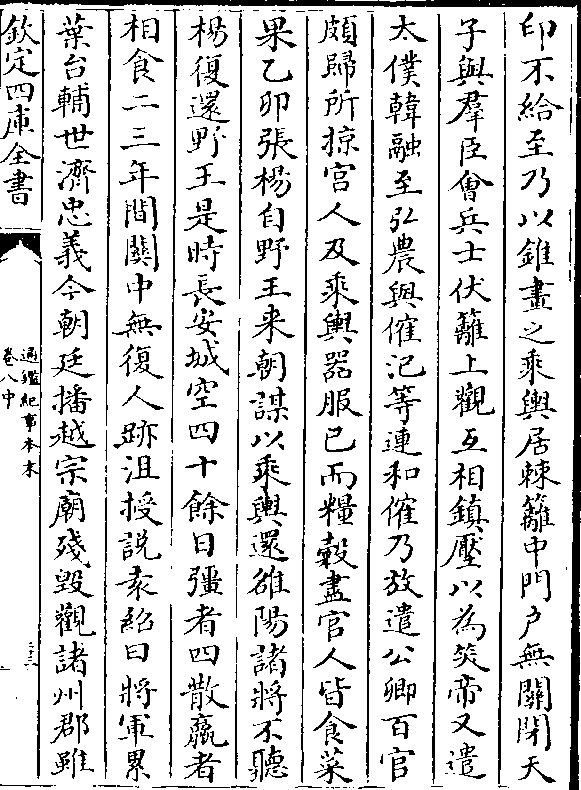 印不給至乃以錐畫之乘輿居棘籬中門戶無關閉天
子與羣臣會兵士伏籬上觀互相鎮壓以為笑帝又遣
太僕韓融至弘農與傕汜等連和傕乃放遣公卿百官
頗歸所掠宫人及乘輿器服已而糧榖盡宫人皆食菜
果乙卯張楊自野王来朝謀以乘輿還雒陽諸將不聽
楊復還野王是時長安城空四十餘日彊者四散羸者
相食二三年間關中無復人跡沮授說袁紹曰將軍累
葉台輔世濟忠義今朝廷播越宗廟殘毁觀諸州郡雖
欽定四庫全書
通鑑紀事本末
卷八中